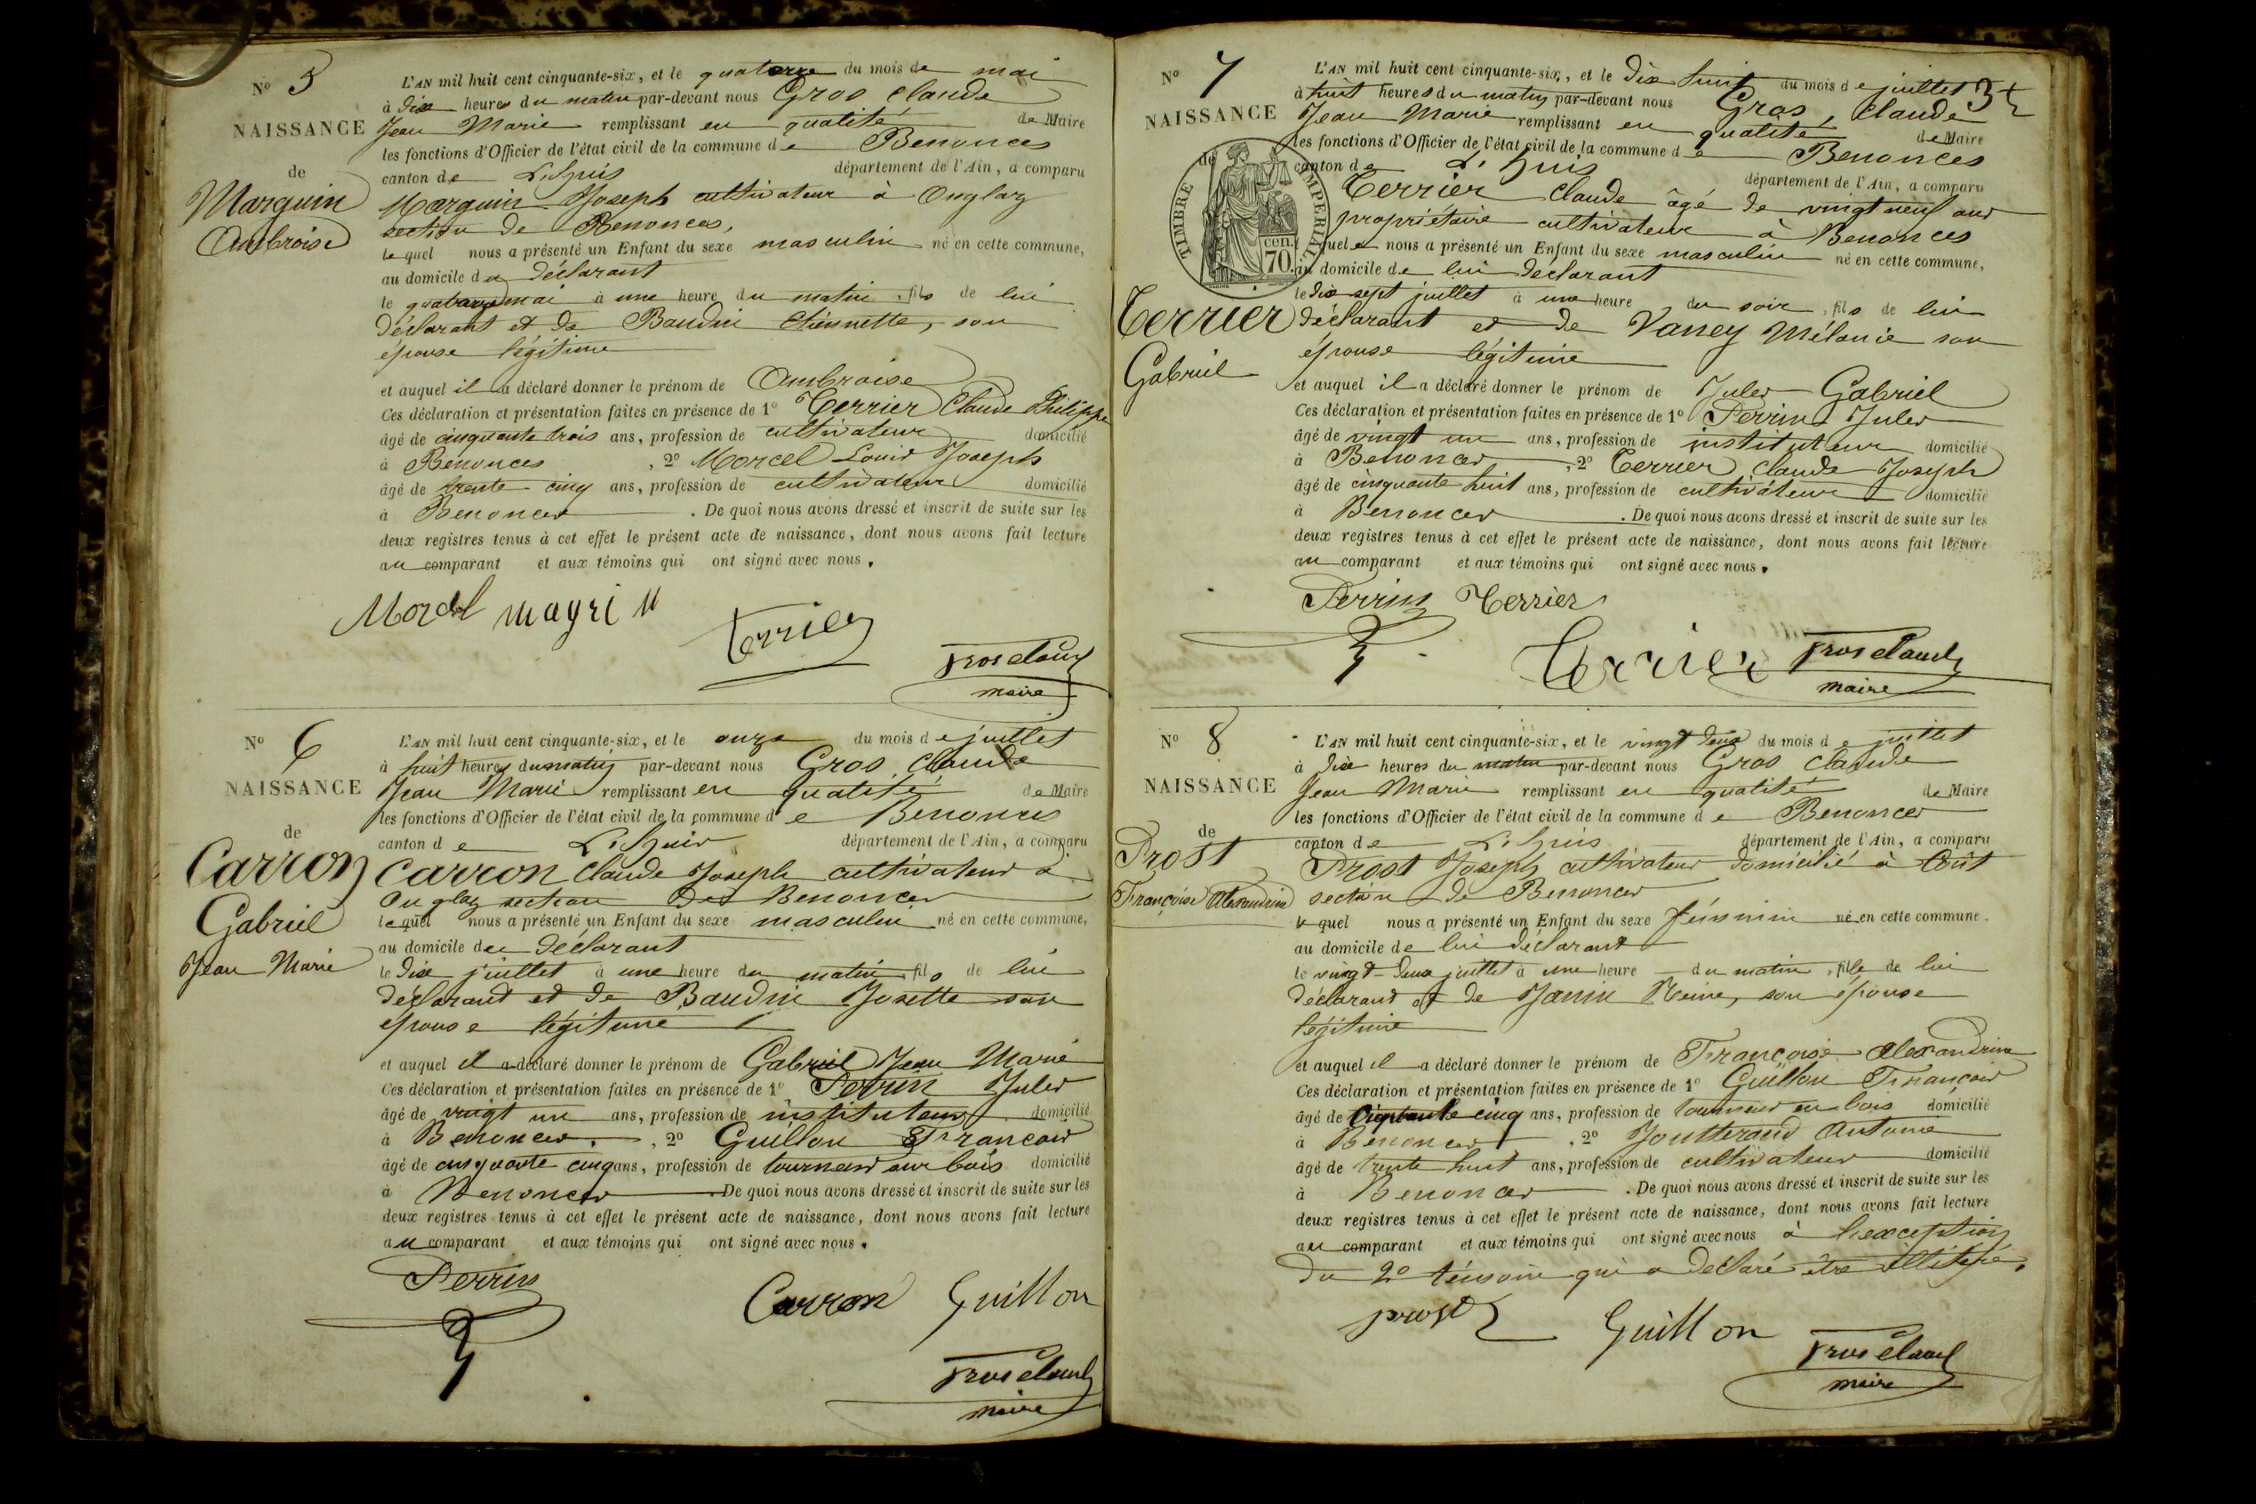 N° 5
NAISSANCE
de
Marguin
Ambroise
L'AN mil huit cent cinquante-six, et le quatorze du mois de mai
à dix heures du matin par-devant nous Gros Claude
Jean Marie remplissant en qualité de Maire
les fonctions d'Officier de l'état civil de la commune de Benonces
canton de L'huis département de l'Ain, a comparu
Marguin Joseph cultivateur à Onglaz
section de Benonces,
lequel nous a présenté un Enfant du sexe masculin né en cette commune,
au domicile du déclarant
le quatorze mai à une heure du matin, fils de lui
déclarant et de Baudin Etiennette, son
épouse légitime
et auquel il a déclaré donner le prénom de Ambroise
Ces déclaration et présentation faites en présence de 1° Terrier Claude Philippe
âgé de cinquante trois ans, profession de cultivateur domicilié
à Benonces, 2° Morcel Louis Joseph
âgé de trente cinq ans, profession de cultivateur domicilié
à Benonces. De quoi nous avons dressé et inscrit de suite sur les
deux registres tenus à cet effet le présent acte de naissance, dont nous avons fait lecture
au comparant et aux témoins qui ont signé avec nous.
Morcel magrin Terrier
Gros Claude
maire
N° 6
NAISSANCE
de
Carron
Gabriel
Jean Marie
L'AN mil huit cent cinquante-six, et le onze du mois de juillet
à huit heures du matin par-devant nous Gros Claude
Jean Marie remplissant en qualité de Maire
les fonctions d'Officier de l'état civil de la commune de Benonces
canton de L'huis département de l'Ain, a comparu
Carron Claude Joseph cultivateur à
Onglaz section de Benonces
lequel nous a présenté un Enfant du sexe masculin né en cette commune,
au domicile du déclarant
le dix juillet à une heure du matin, fils de lui
déclarant et de Baudin Josette son
épouse légitime
et auquel il a déclaré donner le prénom de Gabriel Jean Marie
Ces déclaration et présentation faites en présence de 1° Perrin Jules
âgé de vingt un ans, profession de instituteur domicilié
à Benonces, 2° Guillon François
âgé de cinquante cinq ans, profession de tourneur sur bois domicilié
à Benonces De quoi nous avons dressé et inscrit de suite sur les
deux registres tenus à cet effet le présent acte de naissance, dont nous avons fait lecture
au comparant et aux témoins qui ont signé avec nous.
Perrin Carron Guillon
Gros Claude
maire
N° 7
NAISSANCE
de
Terrier
Gabriel
TIMBRE IMPERIAL
70 cen.
L'AN mil huit cent cinquante-six, et le dix huit du mois de juillet
à huit heures du matin par-devant nous Gros, Claude
Jean Marie remplissant en qualité de Maire
les fonctions d'Officier de l'état civil de la commune de Benonces
canton de L'huis département de l'Ain, a comparu
Terrier Claude âgé de vingt neuf ans
propriétaire cultivateur à Benonces
quel nous a présenté un Enfant du sexe masculin né en cette commune,
au domicile de lui déclarant
le dix sept juillet à une heure du soir, fils de lui
déclarant et de Vaney Mélanie son
épouse légitime
et auquel il a déclaré donner le prénom de Jules Gabriel
Ces déclaration et présentation faites en présence de 1° Perrin Jules
âgé de vingt un ans, profession de instituteur domicilié
à Benonces, 2° Terrier, Claude Joseph
âgé de cinquante huit ans, profession de cultivateur domicilié
à Benonces. De quoi nous avons dressé et inscrit de suite sur les
deux registres tenus à cet effet le présent acte de naissance, dont nous avons fait lecture
au comparant et aux témoins qui ont signé avec nous.
Perrin Terrier
Terrier Gros Claude
maire
N° 8
NAISSANCE
de
Prost
Françoise Alexandrine
L'AN mil huit cent cinquante-six, et le vingt deux du mois de juillet
à dix heures du matin par-devant nous Gros Claude
Jean Marie remplissant en qualité de Maire
les fonctions d'Officier de l'état civil de la commune de Benonces
canton de L'huis département de l'Ain, a comparu
Prost Joseph cultivateur domicilié à
section de Benonces
lequel nous a présenté un Enfant du sexe féminin né en cette commune,
au domicile de lui déclarant
le vingt-deux juillet à une heure du matin, fille de lui
déclarant et de Janin Reine, son épouse
légitime
et auquel il a déclaré donner le prénom de Françoise Alexandrine
Ces déclaration et présentation faites en présence de 1° Guillon François
âgé de cinquante cinq ans, profession de tourneur en bois domicilié
à Benonces, 2° Joutterand Antoine
âgé de trente huit ans, profession de cultivateur domicilié
à Benonces. De quoi nous avons dressé et inscrit de suite sur les
deux registres tenus à cet effet le présent acte de naissance, dont nous avons fait lecture
au comparant et aux témoins qui ont signé avec nous à l'exception
du 2° témoin qui a déclaré être illitéré.
prost Guillon Gros Claude
maire